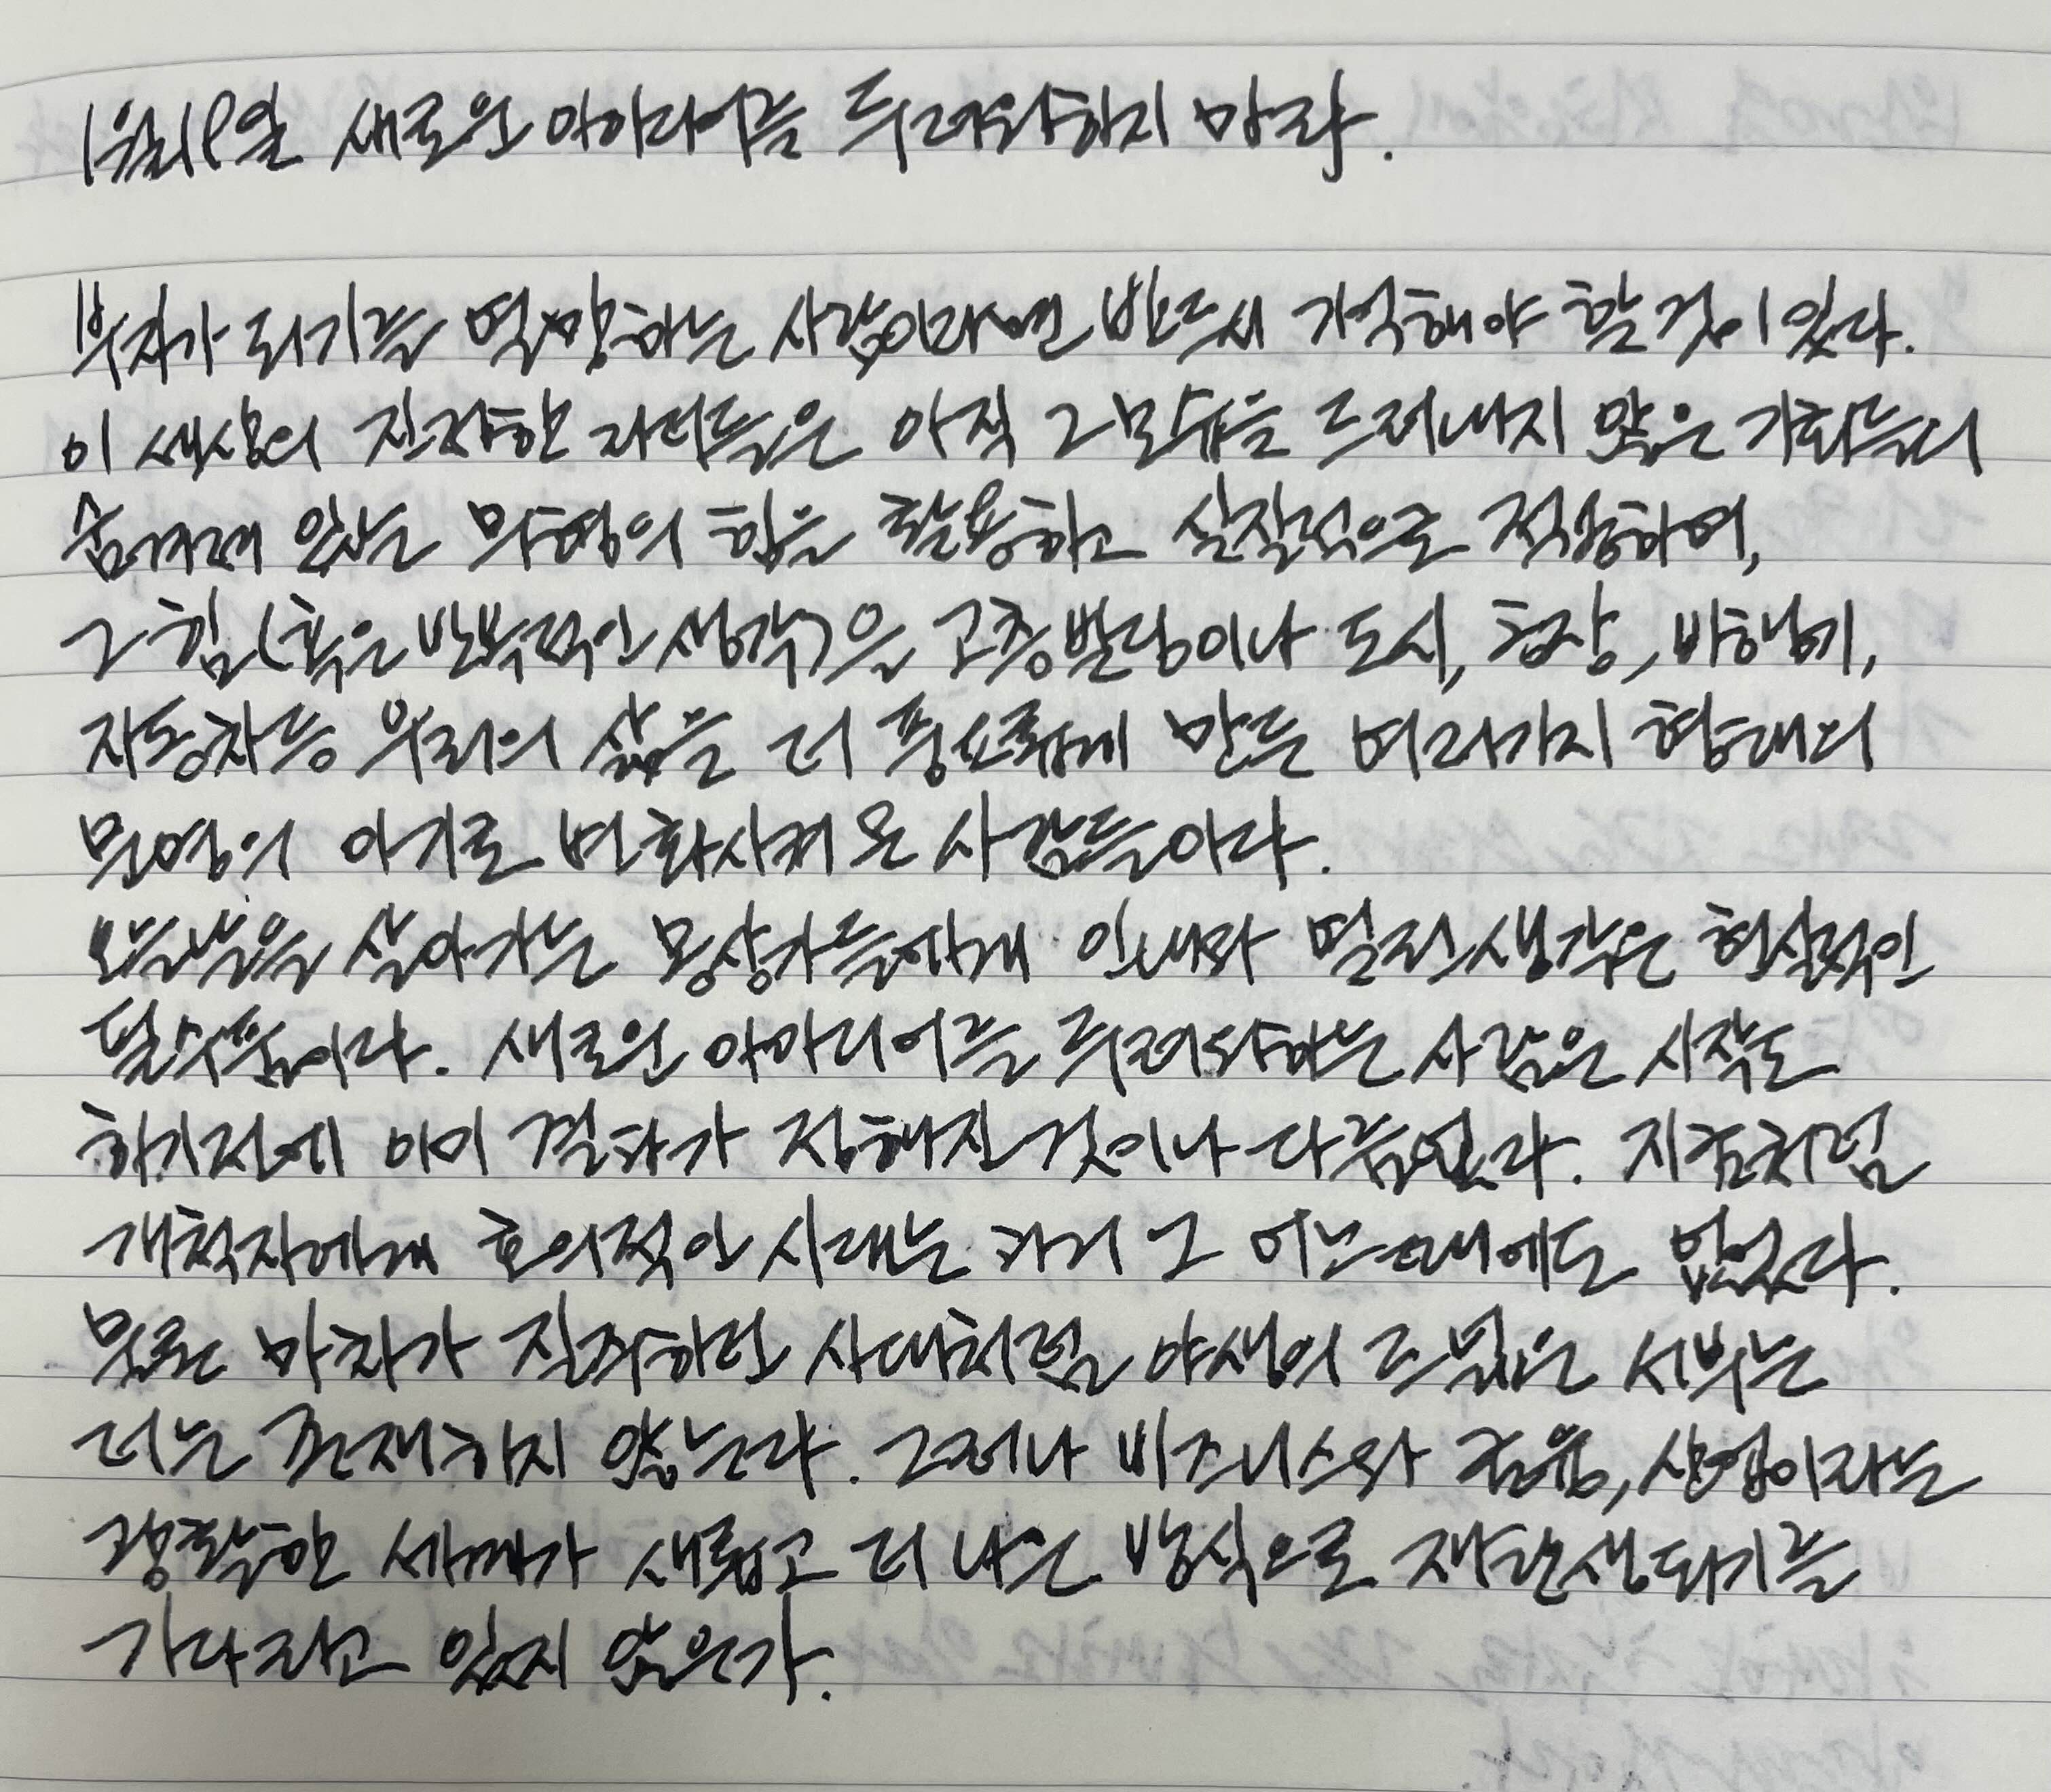 1월18일 새로운 아이디어를 두려워하지 마라.
부자가 되기를 열망하는 사람이라면 반드시 기억해야 할 것이 있다.
이 세상의 진정한 리더들은 아직 그 모습을 드러내지 않은 기회들의
숨겨져 있는 무형의 힘을 활용하고 실질적으로 적용하여,
그 힘(혹은 반복적인 생각)을 고층빌딩이나 도시, 공장, 비행기,
자동차등 우리의 삶을 더 풍요롭게 만든 여러가지 형태의
문명의 이기로 변화시켜 온 사람들이다.
오늘날을 살아가는 몽상가들에게 인내와 열린생각은 현실적인
필수품이다. 새로운 아이디어를 두려워하는 사람은 시작도
하기전에 이미 결과가 정해진 것이나 다름없다. 지금처럼
개척자에게 호의적인 시대는 과거 그 어느때에도 없었다.
물론 마차가 질주하던 시대처럼 야생의 드넓은 서부는
더는 존재하지 않는다. 그러나 비즈니스와 금융, 산업이라는
광활한 세계가 새롭고 더 나은 방식으로 재탄생되기를
기다리고 있지 않은가.